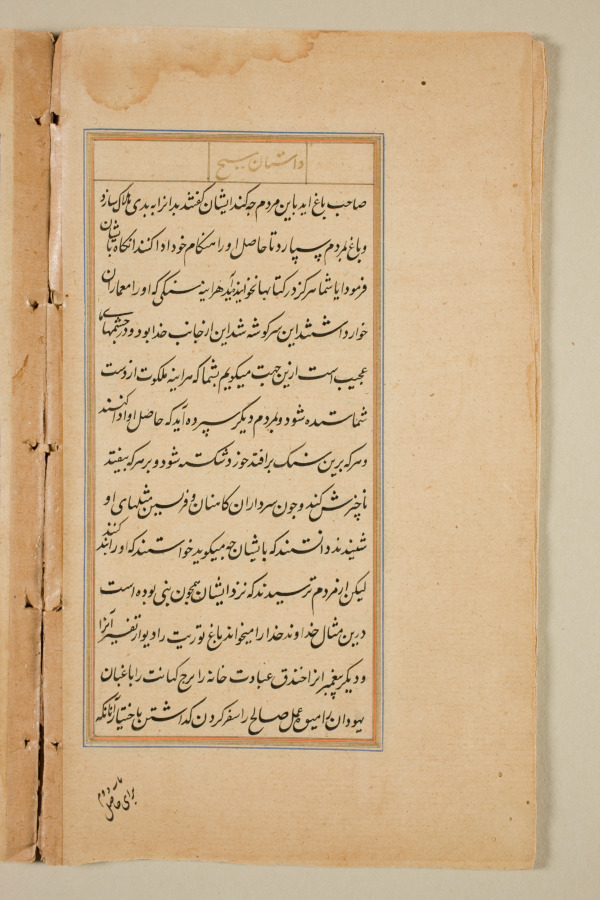 داستان مسیح
صاحب باغ اید باین مردم چه کند ایشان گفتند بدانرا به بدی هلاک سازد
و باغ بمردم سپارد تا حاصل او را هنگام خود ادا کنند انکاه بایشان
فرمود ایا شما هرکز در کتابها نخوانیده‌اید هراینه سنکی که او را معماران
خوار داشتند این سر کوشه شد این از جانب خدا بود و در چشمهای ما
عجیب است ازین جهت میکویم بشما که هراینه ملکوت از دست
شما ستده شود و بمردم دیکر سپرده آید که حاصل او ادا کنند
و هرکه برین سنک برافتد خورد شکسته شود و بر هرکه بیفتد
ناچیزش کند و چون سرداران کاهنان و فرلسین مثلهای او
شنیدند دانستند که بایشان چه میکوید خواستند که او را بند کنند
لیکن از مردم ترسیدند که نزد ایشان همچون نبی بوده است
درین مثال خداوند خدا را میخواند باغ توریت را دیوار تفسیر آنرا
و دیکر پیغمبرانرا خندق عبادت خانه را برج کهانت را باغبان
یهودان را میوه عمل صالح را سفر کردن کذاشتن باختیار آنانکه
برای حاصل